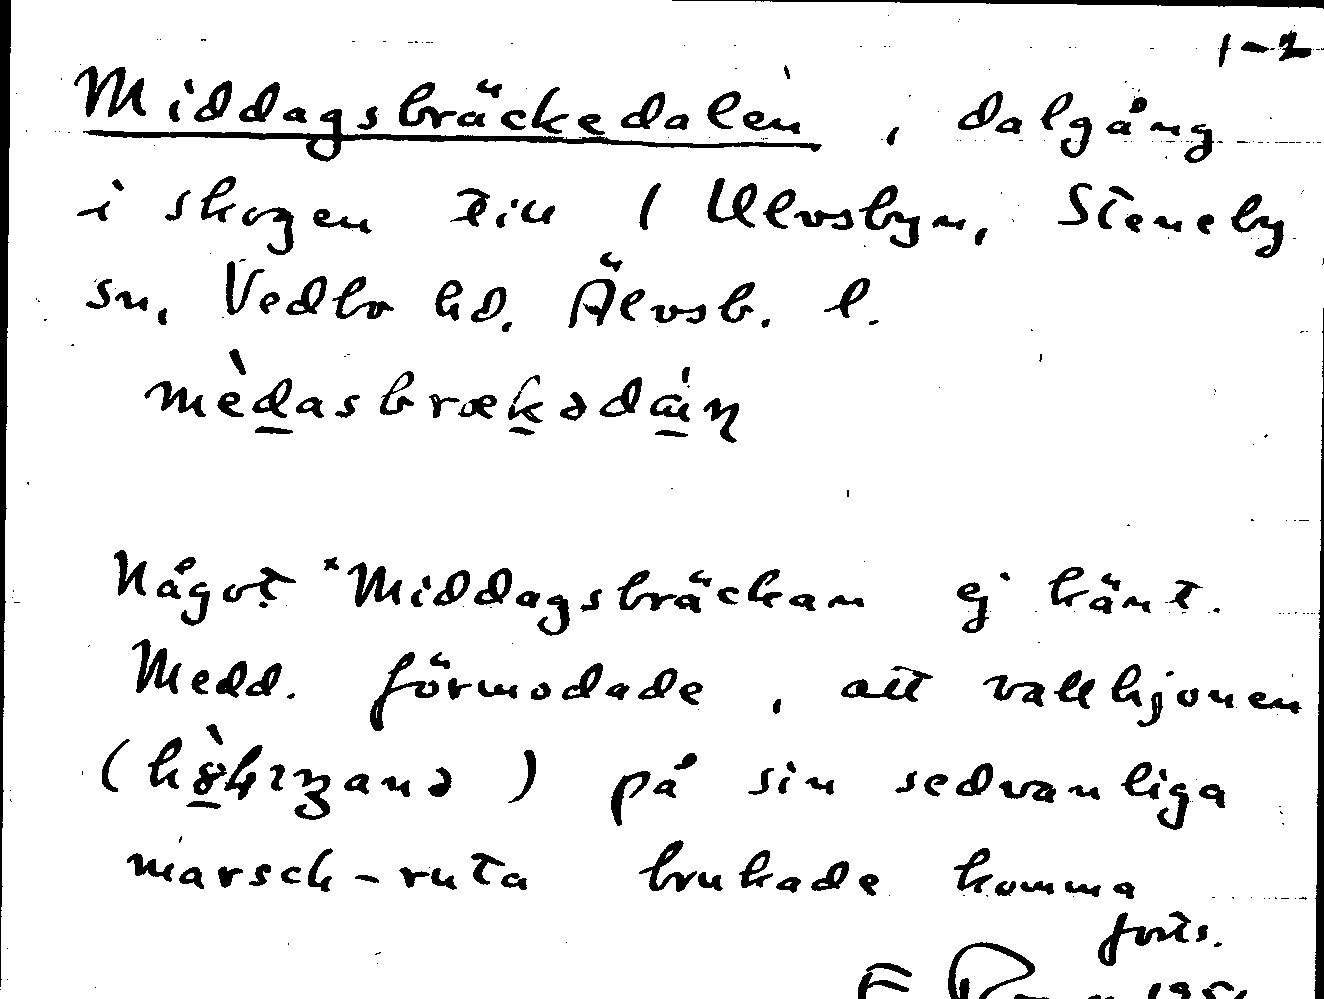 1-2
Middagsbräckedalen, dalgång
i skogen till 1 Ulvsbyn, Steneby
sn, Vedbo hd. Älvsb. l.
mèdasbrækədáɳ
Något *Middagsbräckan ej känt.
Medd. förmodade, att vallhjonen
på sin sedvanliga
marsch-ruta brukade komma
forts.